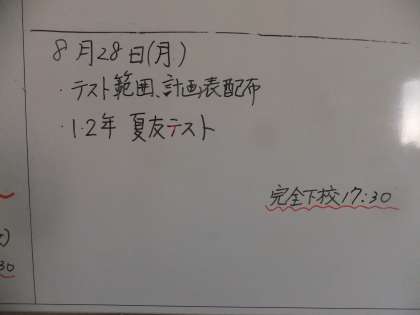 8月28日(月)
・テスト範囲、計画表配布
・1.2年 夏友テスト
完全下校17:30
30